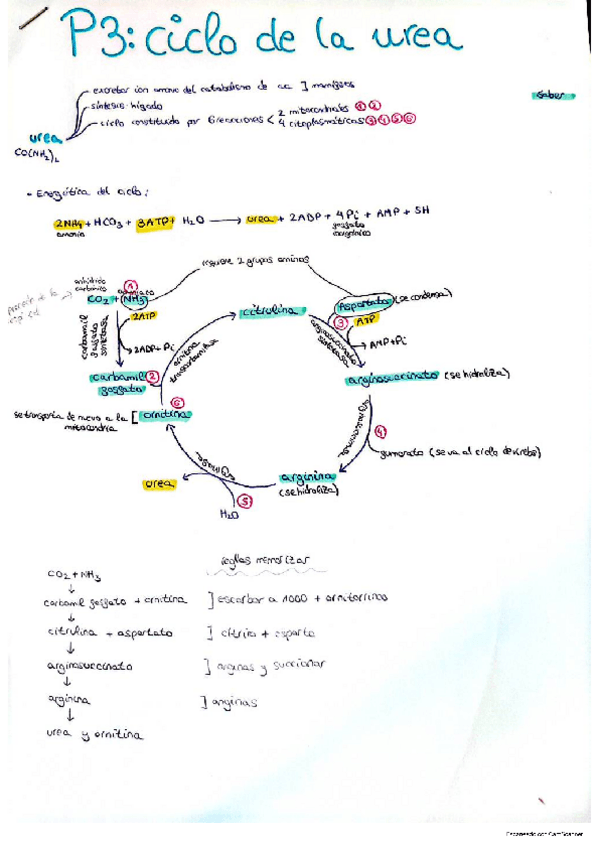 P3: ciclo de la urea
excretar ion amonio del catabolismo de aa ] mamíferos
síntesis: hígado
ciclo constituido por 6 reacciones < 2 mitocondriales ① ②
4 citoplasmáticas ③ ④ ⑤ ⑥
saber
urea
CO(NH2)2
- Energética del ciclo:
2NH4 + HCO3 + 3ATP + H2O → urea + 2ADP + 4Pi + AMP + 5H
amonio
fosfato
inorgánico
requiere 2 grupos aminos
anhídrido
carbónico
①
CO2 + NH3
2ATP
2ADP + Pi
carbamil
fosfato
sintetasa
ornitina
transcarbamilasa
citrulina
Aspartato (se condensa)
③ ATP
AMP+Pi
arginosuccinato
sintetasa
carbamil ②
fosfato
arginosuccinato (se hidroliza)
⑥
se transporta de nuevo a la [ ornitina
mitocondria
④
fumarato (se va al ciclo de krebs)
arginasa
urea
arginina
(se hidroliza)
⑤
H2O
reglas memorizar
CO2 + NH3
↓
carbamil fosfato + ornitina ] escarbar a 1000 + ornitorrinco
↓
citrulina + aspartato ] citrico + esparto
↓
arginosuccinato ] arginas y succionar
↓
arginina ] arginas
↓
urea y ornitina
Escaneado con CamScanner